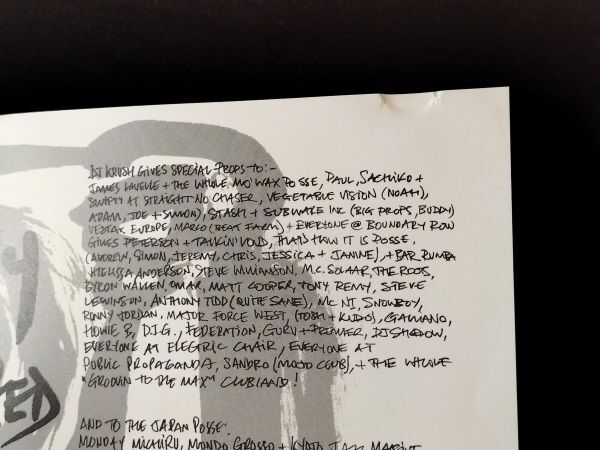 DJ KRUSH GIVES SPECIAL PROPS TO:-
JAMES LAVELLE + THE WHOLE MO' WAX POSSE, PAUL, SACHIKO +
SWIFTY AT STRAIGHT NO CHASER, VEGETABLE VISION (NOAH),
ADAM, JOE + SIMON), STASH + SUBWARE INC (BIG PROPS, BUDDY)
VESTAX EUROPE, MARCO (BEAT FARM) + EVERYONE @ BOUNDARY ROW
GILLES PETERSON + TALKIN' LOUD, THAT'S HOW IT IS POSSE,
(ANDREW, SIMON, JEREMY, CHRIS, JESSICA + JANINE), + BAR RUMBA
MELISSA ANDERSON, STEVE WILLIAMSON, M.C. SOLAAR, THE ROOTS,
BYRON WALLEN, OMAR, MATT COOPER, TONY REMY, STEVE
LEWINSON, ANTHONY TIDD (QUITE SANE), MC NI, SNOWBOY,
RONNY JORDAN, MAJOR FORCE WEST, (TOSH + KUDO), GALLIANO,
HOWIE B, D.I.G., FEDERATION, GURU + PREMIER, DJ SHADOW,
EVERYONE AT ELECTRIC CHAIR, EVERYONE AT
PUBLIC PROPAGANDA, SANDRO (MOJO CLUB), + THE WHOLE
"GROOVIN TO THE MAX" CLUBLAND!
AND TO THE JAPAN POSSE.
MONDAY MICHIRU, MONDO GROSSO + KYOTO JAZZ MASSIVE